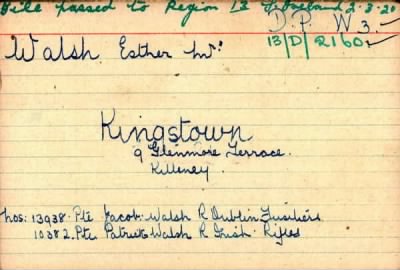 File passed to Region 13 Ireland 2.3.20
D.P. W3.
13/D/2160
Walsh Esther Mrs
Kingstown
9 Glenmore Terrace.
Killeney.
nos: 13938. Pte Jacob. Walsh R Dublin Fusiliers
10382. Pte Patrick Walsh R Irish. Rifles